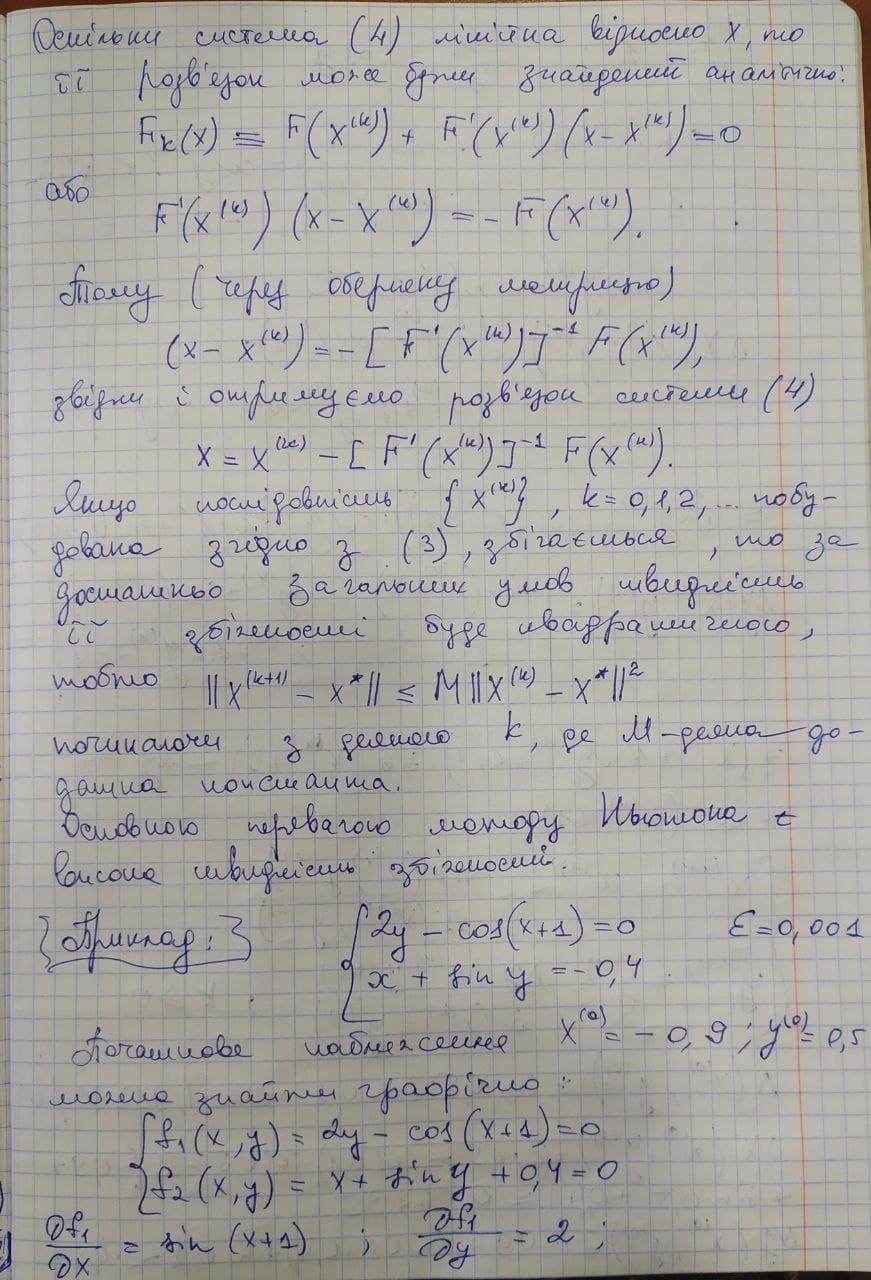 Оскільки система (4) лінійна відносно X, то
її розв'язок може бути знайдений аналітично:
Fₖ(x) ≡ F(x⁽ᵏ⁾) + F'(x⁽ᵏ⁾)(x - x⁽ᵏ⁾) = 0
або
F'(x⁽ᵏ⁾) (x - x⁽ᵏ⁾) = - F(x⁽ᵏ⁾).
Тому (через обернену матрицю)
(x - x⁽ᵏ⁾) = - [F'(x⁽ᵏ⁾)]⁻¹ F(x⁽ᵏ⁾),
звідки і отримуємо розв'язок системи (4)
x = x⁽ᵏ⁾ - [F'(x⁽ᵏ⁾)]⁻¹ F(x⁽ᵏ⁾).
Якщо послідовність {x⁽ᵏ⁾}, k = 0,1,2,... побу-
дована згідно з (3), збігається, то за
достатньо загальних умов швидкість
її збіжності буде квадратичною,
тобто ||x⁽ᵏ⁺¹⁾ - x*|| ≤ M||x⁽ᵏ⁾ - x*||²
починаючи з деякого k, де M - деяка до-
датна константа.
Основною перевагою методу Ньютона є
висока швидкість збіжності.
Приклад: {2y - cos(x+1) = 0 ε = 0,001
x + sin y = - 0,4.
Початкове наближення x⁽⁰⁾ = - 0,9; y⁽⁰⁾ = 0,5
можна знайти графічно:
{f₁(x,y) = 2y - cos(x+1) = 0
f₂(x,y) = x + sin y + 0,4 = 0
∂f₁/∂x = sin (x+1) ; ∂f₁/∂y = 2 ;